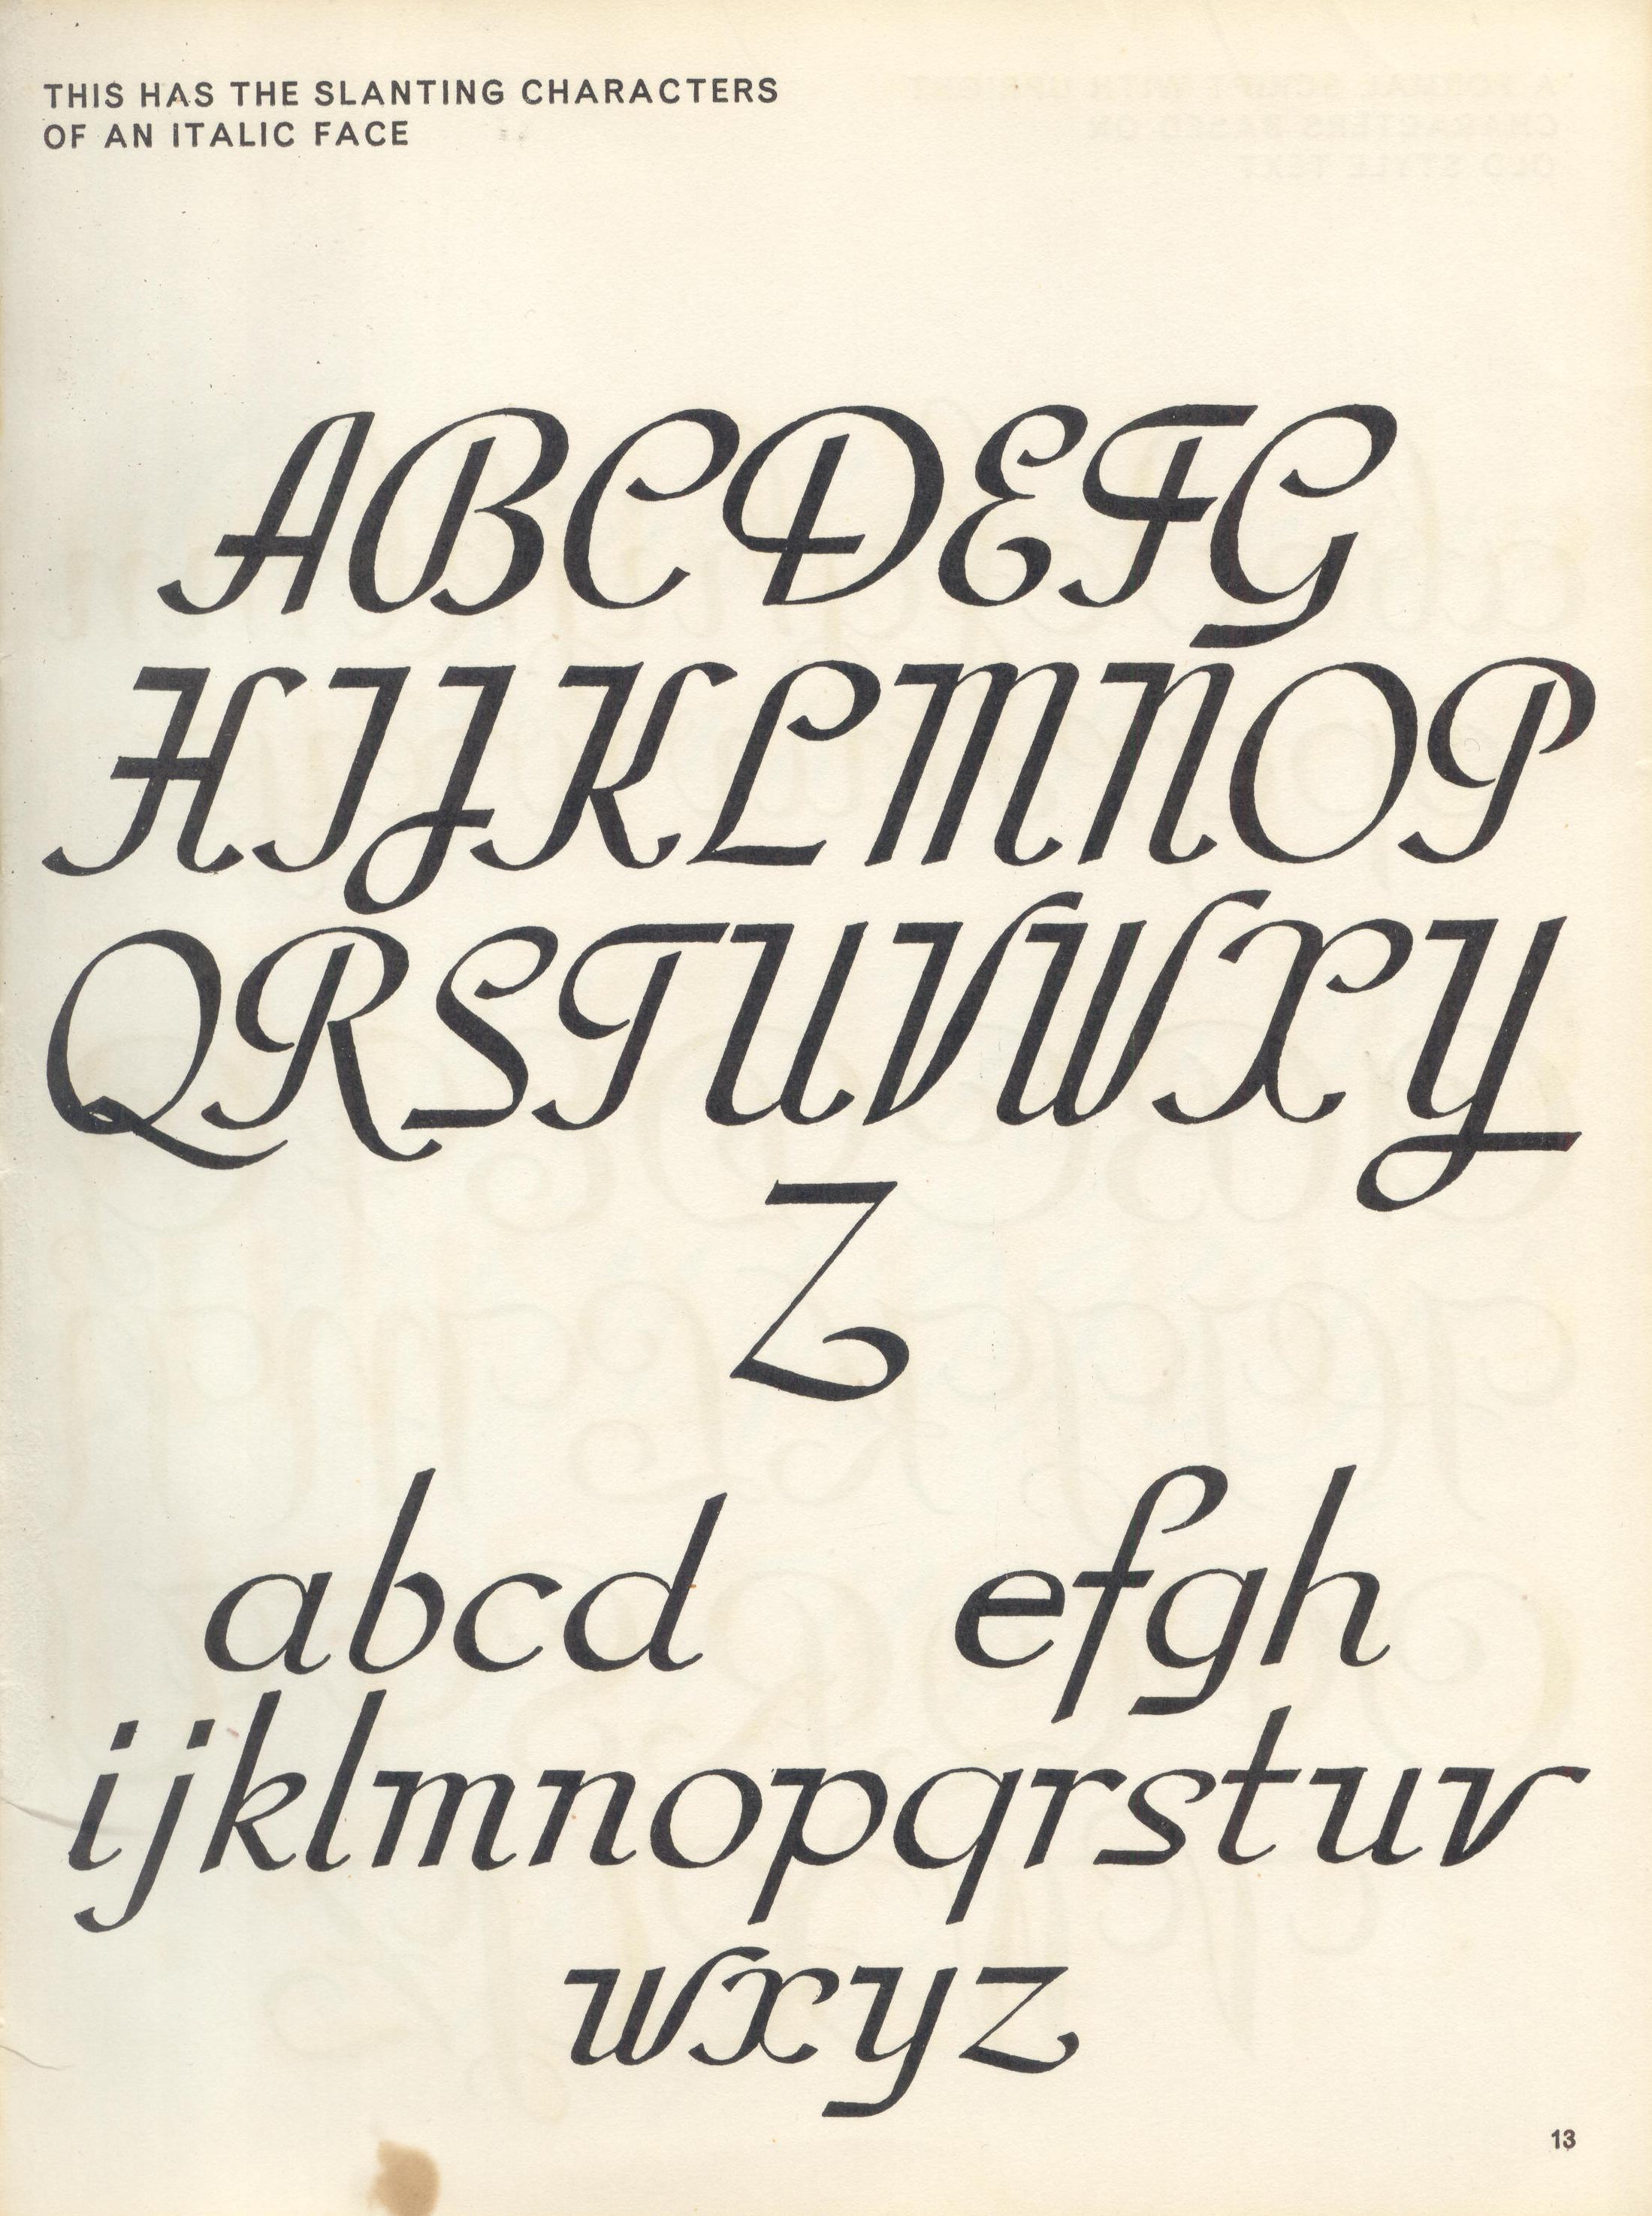 THIS HAS THE SLANTING CHARACTERS
OF AN ITALIC FACE
ABCDEFG
HIJKLMNOP
QRSTUVWXY
Z
abcd efgh
ijklmnopqrstuv
wxyz
13